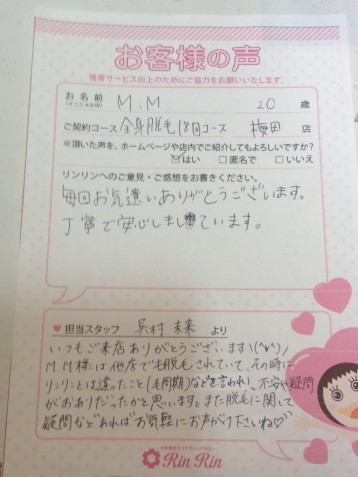 お客様の声
接客サービス向上のためにご協力をお願いいたします。
お名前 M.M 20 歳
(イニシャル可)
ご契約コース 全身脱毛18回コース 梅田 店
※頂いた声を、ホームページや店内でご紹介してもよろしいですか?
☑はい □匿名で □いいえ
リンリンへのご意見・ご感想をお書きください。
毎回お気遣いありがとうございます。
丁寧で安心しましています。
♥担当スタッフ 呉村 未来 より
いつもご来店ありがとうございます\(^∀^)/
M.M様は他店でも脱毛されていて、その時に
リンリンとは違ったこと(毛周期)などを言われ、不安や疑問
がおありだったかと思います。また脱毛に関して
疑問などあればお気軽にお声がけ下さいね♡
Rin Rin